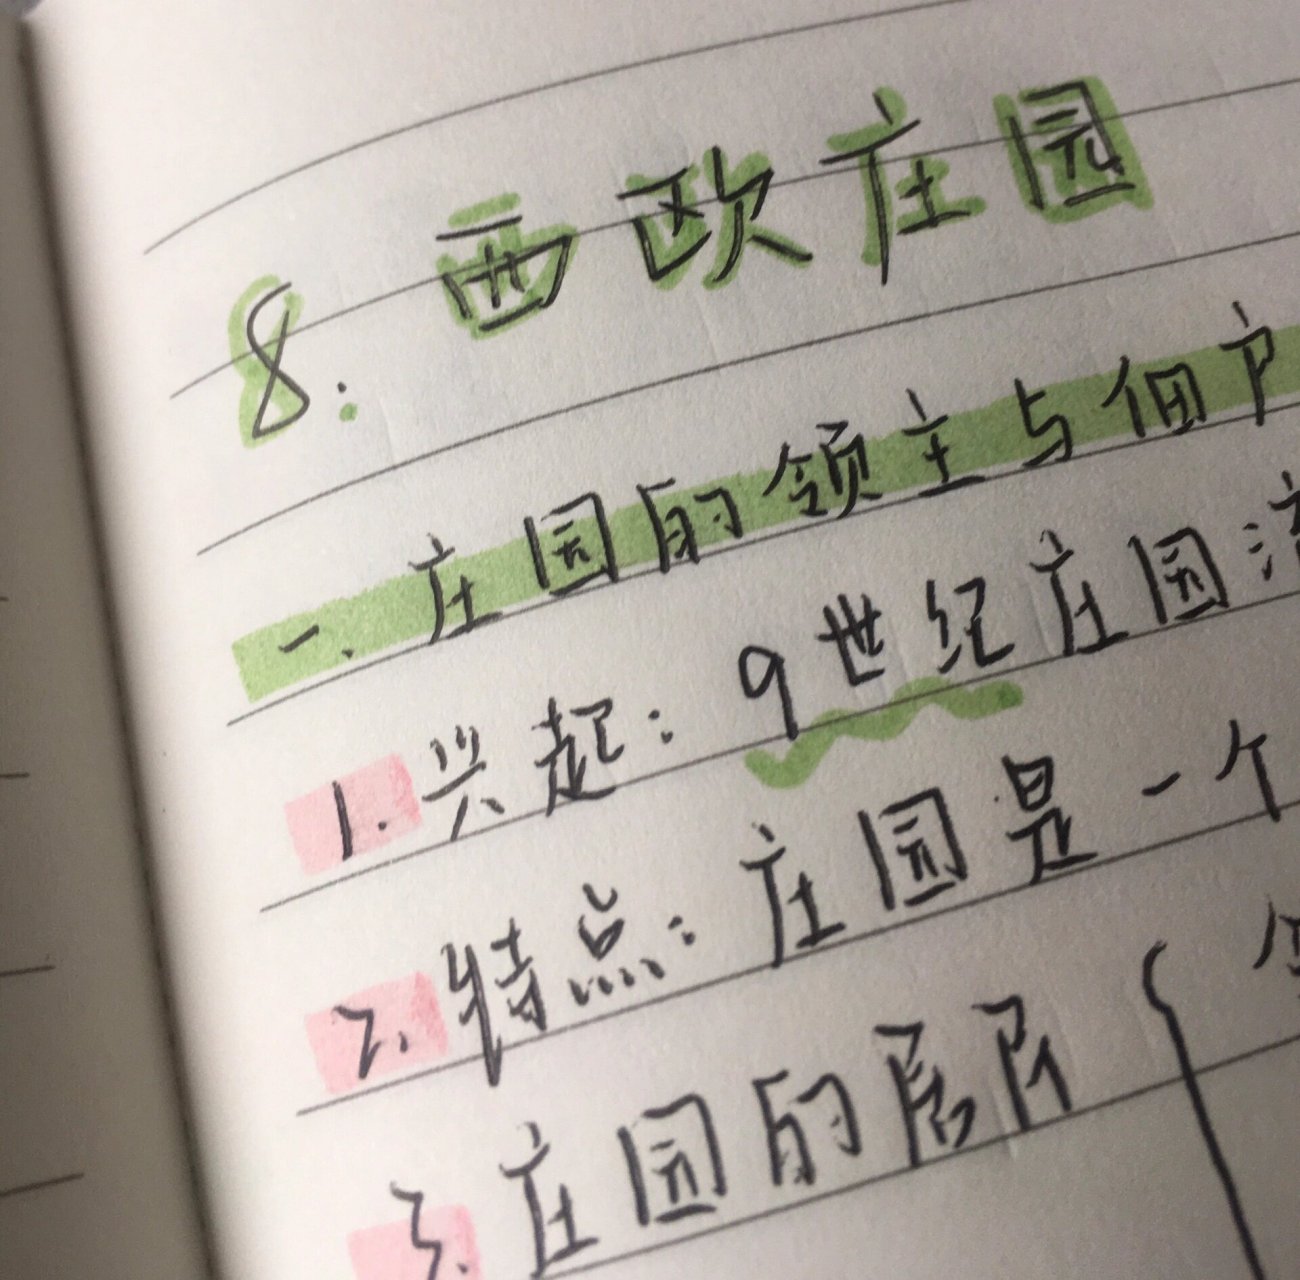 8: 西欧庄园
一、庄园的领主与佃户
1. 兴起: 9世纪庄园
2. 特点: 庄园是一个
3. 庄园的居所